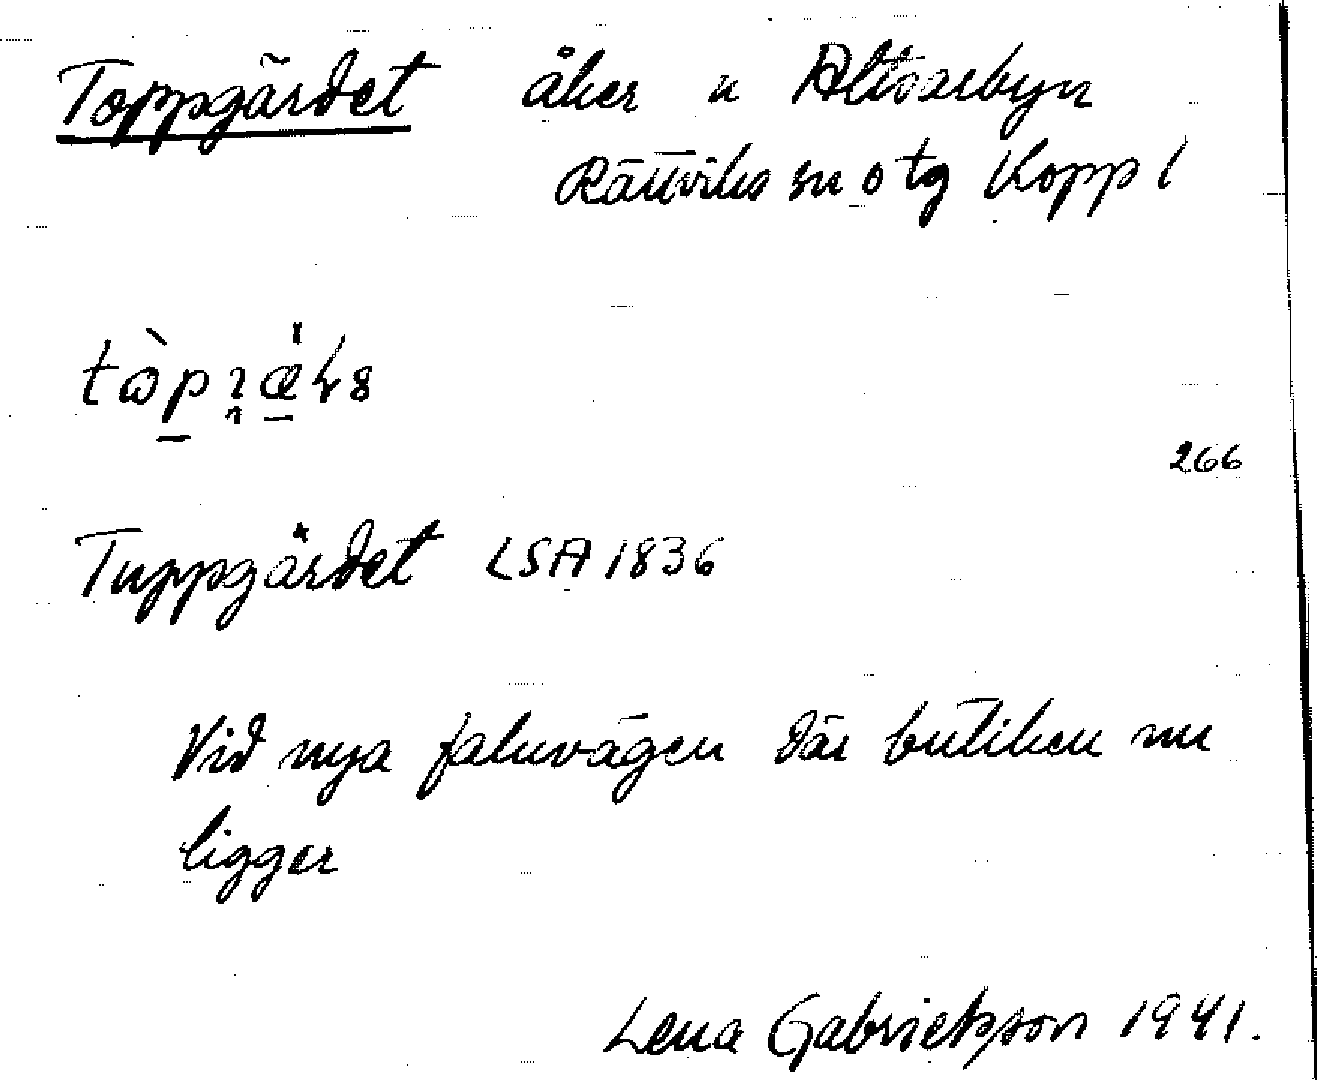 Toppgärdet åker u Altsarbyn
Rättviks sn o tg Kopp l
266
Tuppgärdet LSA 1836
Vid nya faluvägen där butiken nu
ligger
Lena Gabrielsson 1941.